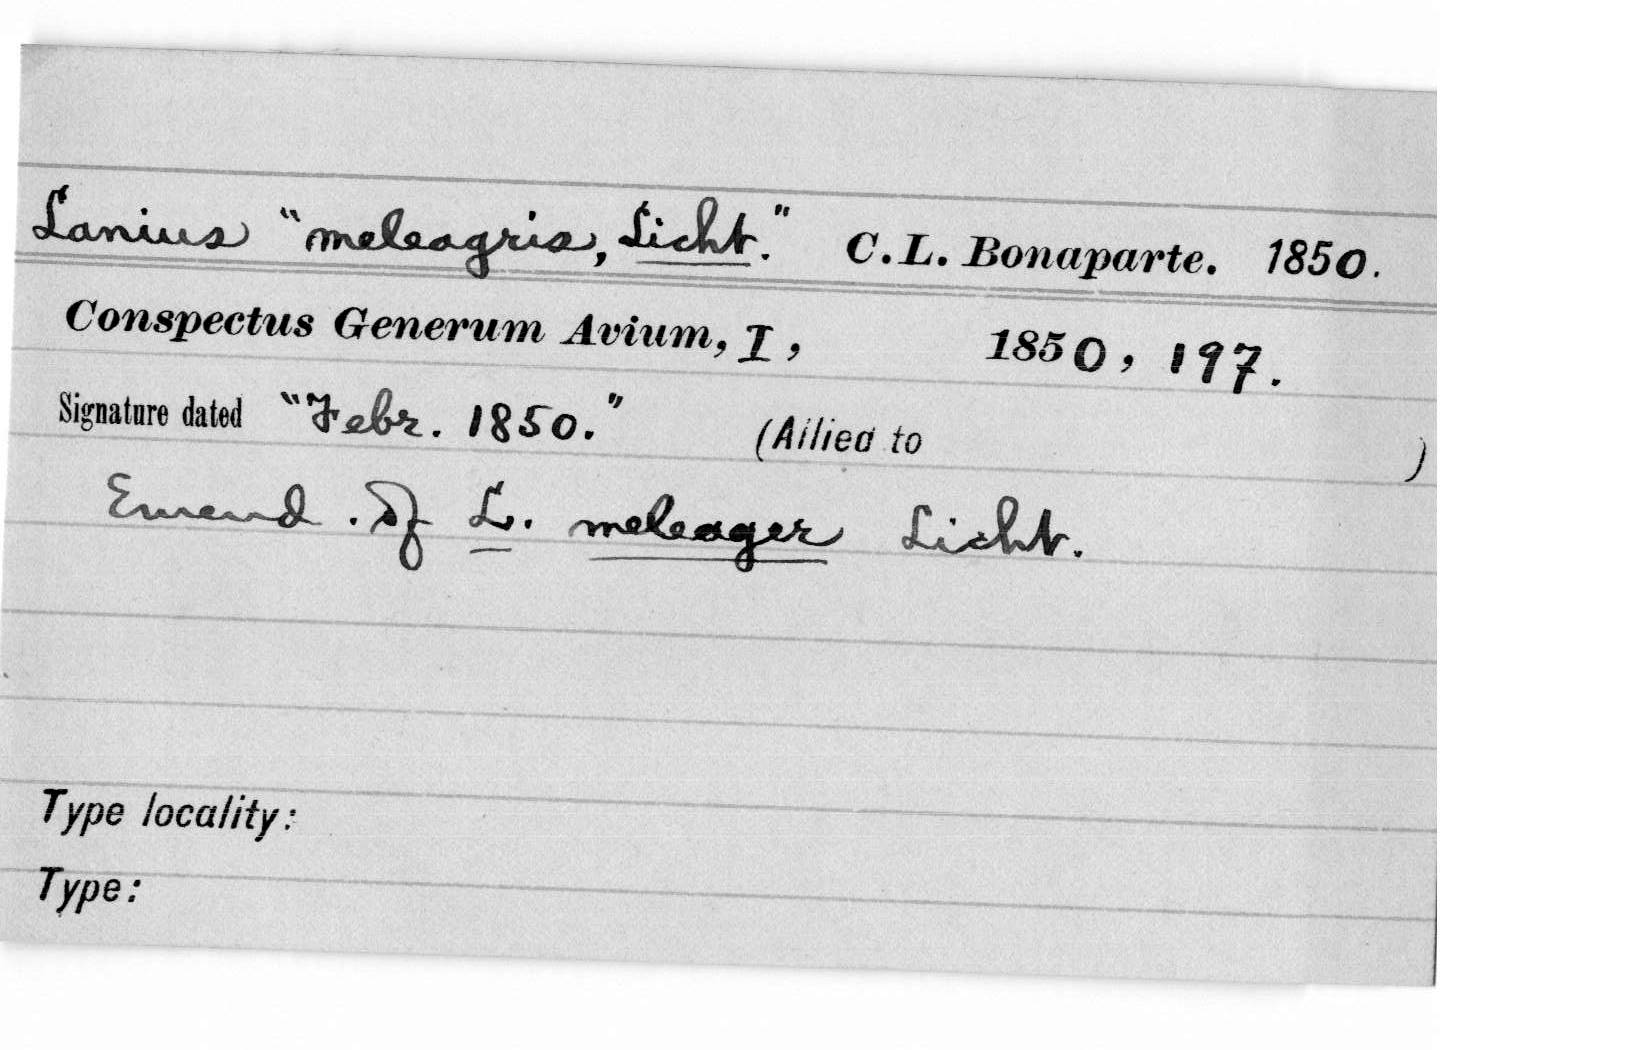 Lanius "meleagris, Licht." C.L. Bonaparte. 1850.
Conspectus Generum Avium, I, 1850, 197.
Signature dated "Febr. 1850." (Allied to )
Emend. of L. meleager Licht.
Type locality:
Type: